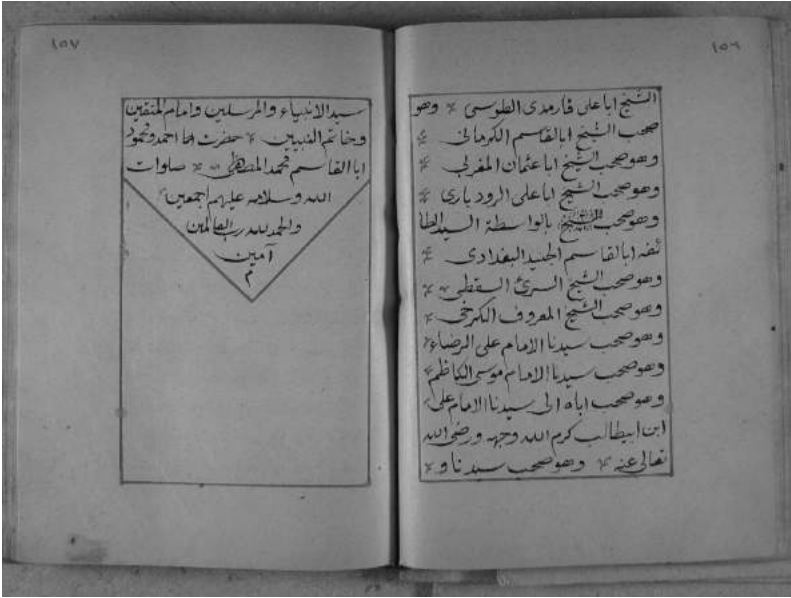 ١٥٦
الشيخ ابا على فارمدى الطوسى ٭ وهو
صحب الشيخ ابالقاسم الكرمانى ٭
وهو صحب الشيخ ابا عثمان المغربى ٭
وهو صحب الشيخ ابا على الرودبارى ٭
وهو صحب الشيخ بانواسطة السيد الطا
ئفه ابالقاسم الجنيد البغدادى ٭
وهو صحب الشيخ السرى السقطى ٭
وهو صحب الشيخ المعروف الكرخى ٭
وهو صحب سيدنا الامام على الرضاء ٭
وهو صحب سيدنا الامام موسى الكاظم ٭
وهو صحب اباه الى سيدنا الامام على
ابن ابيطالب كرم الله وجهه ورضى الله
تعالى عنه ٭ وهو صحب سيدنا و ٭
١٥٧
سيد الانبياء والمرسلين وامام المتقين
وخاتم النبيين ٭ حضرت احمد ومحمود
ابا القاسم محمد المصطفى ٭ صلوات
الله وسلامه عليهم اجمعين
والحمد لله رب العالمين
آمين
م